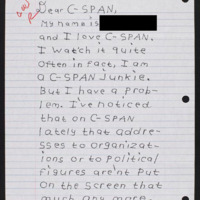 Dear C-SPAN,
My name is
and I love C-SPAN.
I watch it quite
often in fact, I am
a C-SPAN Junkie.
But I have a prob-
lem. I've noticed
that on C-SPAN
lately that addre-
sses to organizat-
ions or to political
figures aren't put
on the screen that
much any more.